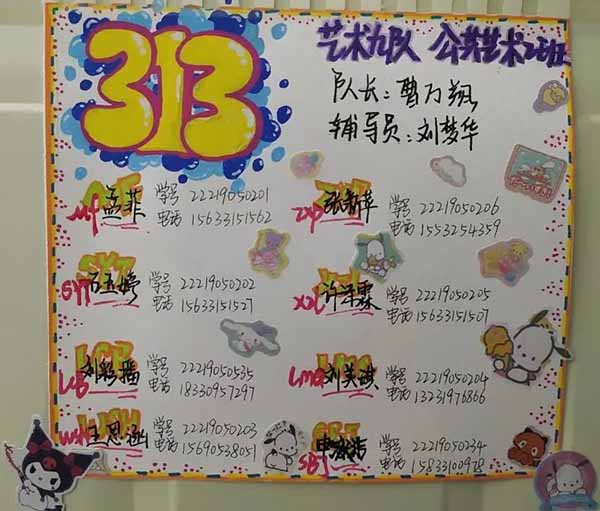 313
艺术九队 公共艺术2班
队长：曹万翔
辅导员：刘梦华
mf 孟菲 学号 22219050201
电话 15633151562
zxp 张新苹 学号 22219050206
电话 1553254359
syt 石玉婷 学号 22219050202
电话 15633151527
xzl 许泽霖 学号 22219050205
电话 15633151507
LCB 刘彩播 学号 22219050535
电话 18330957297
LMQ 刘美淇 学号 22219050204
电话 13231976866
wsh 王思涵 学号 22219050203
电话 15690538051
SBJ 学号 22219050234
电话 15833100978